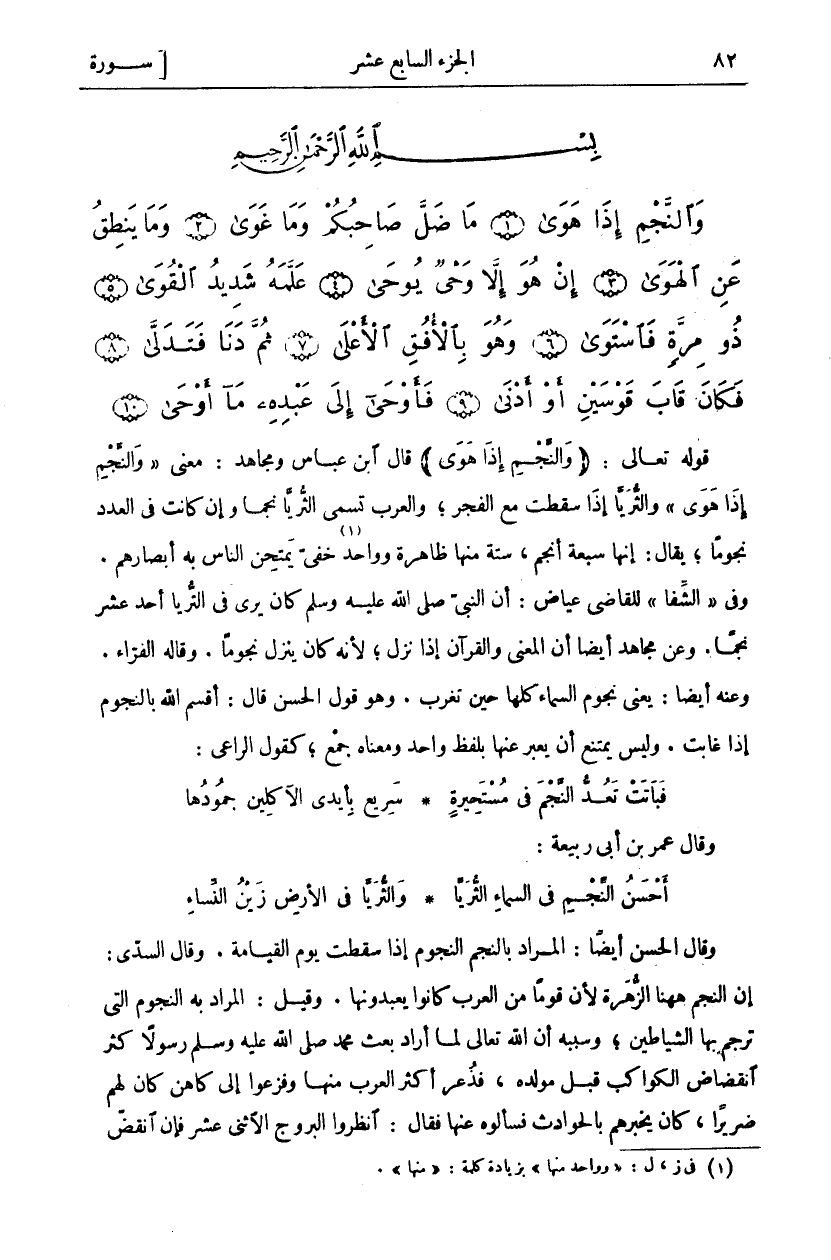 ٨٢ الجزء السابع عشر [ ســـورة
بِسْــــــمِ ٱللَّهِ ٱلرَّحْمَٰنِ ٱلرَّحِيمِ
وَٱلنَّجْمِ إِذَا هَوَىٰ ﴿١﴾ مَا ضَلَّ صَاحِبُكُمْ وَمَا غَوَىٰ ﴿٢﴾ وَمَا يَنطِقُ
عَنِ ٱلْهَوَىٰ ﴿٣﴾ إِنْ هُوَ إِلَّا وَحْىٌ يُوحَىٰ ﴿٤﴾ عَلَّمَهُ شَدِيدُ ٱلْقُوَىٰ ﴿٥﴾
ذُو مِرَّةٍ فَٱسْتَوَىٰ ﴿٦﴾ وَهُوَ بِٱلْأُفُقِ ٱلْأَعْلَىٰ ﴿٧﴾ ثُمَّ دَنَا فَتَدَلَّىٰ ﴿٨﴾
فَكَانَ قَابَ قَوْسَيْنِ أَوْ أَدْنَىٰ ﴿٩﴾ فَأَوْحَىٰٓ إِلَىٰ عَبْدِهِۦ مَآ أَوْحَىٰ ﴿١٠﴾
قوله تعـالى : ﴿ وَالنَّجْـمِ إِذَا هَوَى ﴾ قال ٱبن عبـاس ومجاهد : معنى « وَالنَّجْمِ
إِذَا هَوَى » والثُّرَيَّا إذَا سقطت مع الفجر ؛ والعرب تسمى الثُّريّا نجمـا وإن كانت فى العدد
نجومًا ؛ يقال : إنها سبعة أنجم ، ستة منها ظاهرة وواحد (١) خفىّ يَمتحِن الناس به أبصارهم .
وفى « الشِّفا » للقاضى عياض : أن النبىّ صلى الله عليـه وسلم كان يرى فى الثريا أحد عشر
نجمًـا . وعن مجاهد أيضا أن المعنى والقرآن إذا نزل ؛ لأنه كان ينزل نجومًا . وقاله الفرّاء .
وعنه أيضا : يعنى نجوم السماء كلها حين تغرب . وهو قول الحسن قال : أقسم الله بالنجوم
إذا غابت . وليس يمتنع أن يعبر عنها بلفظ واحد ومعناه جمْع ؛ كقول الراعى :
فَبَاتَتْ تَعُـدُّ النَّجْمَ فى مُسْتَحِيرةٍ * سَرِيعٍ بِأيدى الآكلِين جمُودُها
وقال عمر بن أبى ربيعة :
أَحْسَنُ النَّجْـمِ فى السماءِ الثُّرَيَّا * وَالثُّرَيَّا فى الأرضِ زَيْنُ النِّساءِ
وقال الحسن أيضًا : المـراد بالنجم النجوم إذا سقطت يوم القيـامة . وقال السدّى :
إن النجم ههنا الزُّهَرة لأن قومًا من العرب كانوا يعبدونها . وقيـل : المراد به النجوم التى
ترجم بها الشياطين ؛ وسببه أن الله تعالى لمـا أراد بعث محمد صلى الله عليه وسـلم رسولًا كثر
ٱنقضاض الكواكب قبـل مولده ، فذُعر أكثر العرب منهـا وفزعوا إلى كاهن كان لهم
ضريرًا ، كان يخبرهم بالحوادث فسألوه عنها فقال : ٱنظروا البروج الآثنى عشر فإن ٱنقضّ
(١) فى ز ، ل : « وواحد منها » بزيادة كلمة : « منها » .